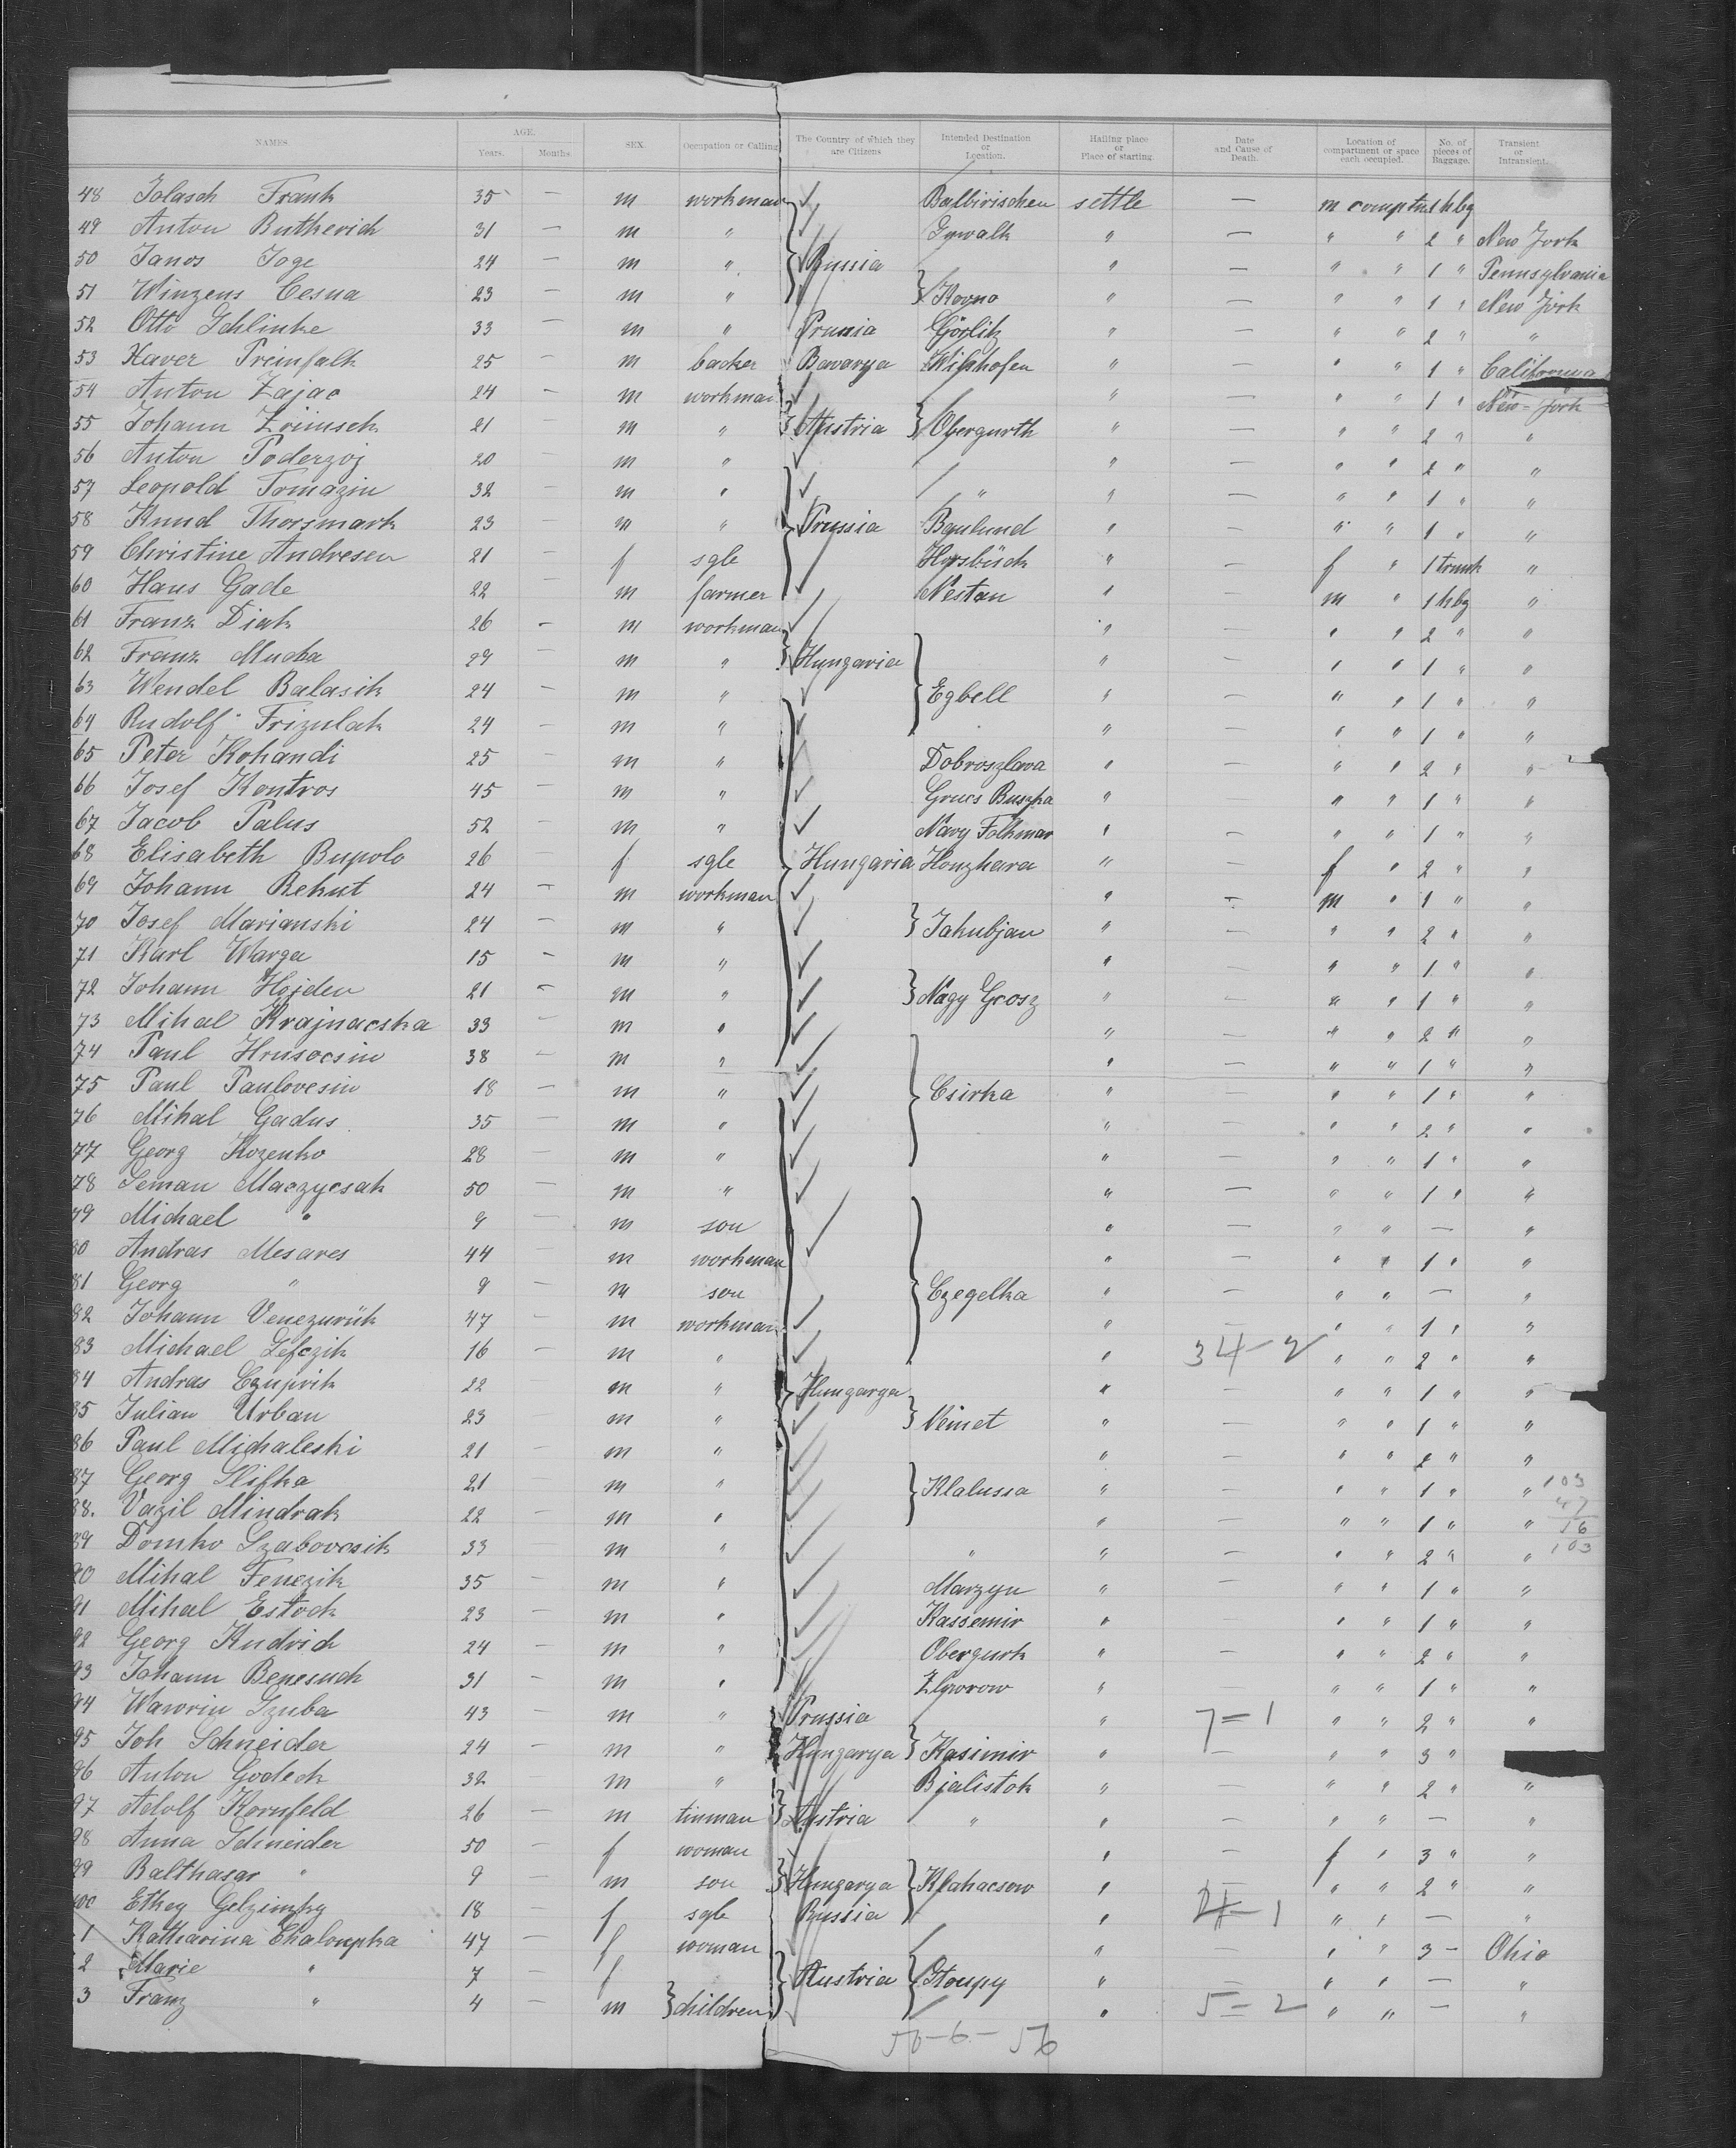 NAMES. AGE. Years. Months. SEX. Occupation or Calling The Country of which they are Citizens Intended Destination or Location. Hailing place or Place of starting. Date and Cause of Death. Location of compartment or space each occupied. No. of pieces of Baggage. Transient or Intransient.
48 Frank 35 — m workman settle — m 1 hbg
49 Anton Butkevich 31 — m " " — " " 2 " New York
50 Janos Joge 24 — m " Russia " — " " 1 " Pennsylvania
51 Winzens Cesna 23 — m " Kovno " — " " 1 " New York
52 Otto Schlinke 33 — m " Prussia Görlitz " — " " 2 " "
53 Xaver Preinfalk 25 — m backer Bavarya " — " " 1 " California
54 Anton Zajac 24 — m workman " — " " 1 " New-York
55 Johann 21 — m " Austria Obergurth " — " " 2 " "
56 Anton Poderzoj 20 — m " " — " " 2 " "
57 Leopold Tomazin 32 — m " " " — " " 1 " "
58 Knud Thorsmark 23 — m " Prussia " — " " 1 " "
59 Christine Andresen 21 — f sgle " — f " 1 trunk "
60 Hans Gade 22 — m farmer " — m " 1 hbg "
61 Franz Diak 26 — m workman " — " " 2 " "
62 Franz Mucha 29 — m " Hungaria " — " " 1 " "
63 Wendel Balasik 24 — m " Egbell " — " " 1 " "
64 Rudolf Frizulak 24 — m " " — " " 1 " "
65 Peter Kohandi 25 — m " Dobroszlava " — " " 2 " "
66 Josef Kontros 45 — m " " — " " 1 " "
67 Jacob Palus 52 — m " " — " " 1 " "
68 Elisabeth Bupolo 26 — f sgle Hungaria " — f " 2 " "
69 Johann Rehut 24 — m workman " — m " 1 " "
70 Josef Marianski 24 — m " Jakubjan " — " " 2 " "
71 Karl Warga 15 — m " " — " " 1 " "
72 Johann Hojden 21 — m " Nagy Grosz " — " " 1 " "
73 Mihal Krajnacska 33 — m " " — " " 2 " "
74 Paul Hrusocsin 38 — m " " — " " 1 " "
75 Paul Paulovcsin 18 — m " Csirka " — " " 1 " "
76 Mihal Gadus 35 — m " " — " " 2 " "
77 Georg Kozenko 28 — m " " — " " 1 " "
78 Seman Maczycsak 50 — m " " — " " 1 " "
79 Michael " 9 — m son " — " " — "
80 Andras Mesares 44 — m workman " — " " 1 " "
81 Georg " 9 — m son Czegelka " — " " — "
82 Johann 47 — m workman " — " " 1 " "
83 Michael Sefczik 16 — m " " 34-2 " " 2 " "
84 Andras 22 — m " Hungarya " — " " 1 " "
85 Julian Urban 23 — m " " — " " 1 " "
86 Paul Michaleski 21 — m " " — " " 2 " "
87 Georg Slifka 21 — m " Klalussa " — " " 1 " " 103
88. Vazil Mindrak 22 — m " " — " " 1 " " 47 56
89 Domko Szabovcsik 33 — m " " " — " " 2 " " 103
90 Mihal Fenezik 35 — m " " — " " 1 " "
91 Mihal Estock 23 — m " Kassemir " — " " 1 " "
92 Georg Kudrich 24 — m " Obergurk " — " " 2 " "
93 Johann Benesuck 31 — m " " " " 1 " "
94 Wawrin Szuba 43 — m " Prussia " 7=1 " " 2 " "
95 Joh Schneider 24 — m " Hungarya Kasimir " — " " 3 "
96 Anton Godeck 32 — m " Bjalistok " — " " 2 " "
97 Adolf Kornfeld 26 — m tinman Austria " " — " " — "
98 Anna Schneider 50 — f woman " — f " 3 " "
99 Balthasar " 9 — m son Hungarya Klahacsow " — " " 2 " "
100 18 — f sgle Russia " 4-1 " " — "
1 Katharina Chaloupka 47 — f woman " — " " 3 — Ohio
2 Marie " 7 — f Austria Stoupy " — " " — "
3 Franz " 4 — m children " 5=2 " " — "
50-6-56